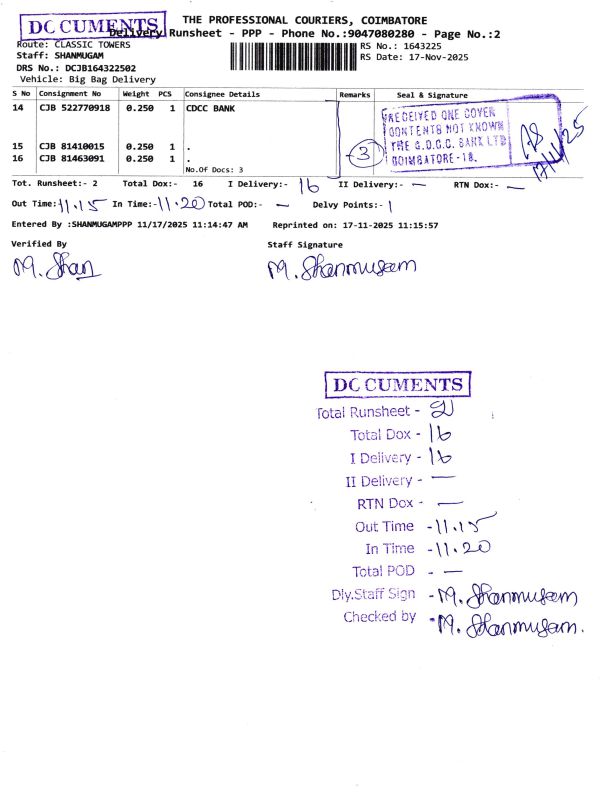 DOCUMENTS
THE PROFESSIONAL COURIERS, COIMBATORE
Delivery Runsheet - PPP - Phone No.:9047080280 - Page No.:2
Route: CLASSIC TOWERS
Staff: SHANMUGAM
DRS No.: DCJB164322502
Vehicle: Big Bag Delivery
RS No.: 1643225
RS Date: 17-Nov-2025
S No Consignment No Weight PCS Consignee Details Remarks Seal & Signature
14 CJB 522770918 0.250 1 CDCC BANK
15 CJB 81410015 0.250 1 .
16 CJB 81463091 0.250 1 .
No.Of Docs: 3
3
RECEIVED ONE COVER
CONTENTS NOT KNOWN
THE C.D.C.C. BANK LTD
COIMBATORE-18.
17/11/25
Tot. Runsheet:- 2 Total Dox:- 16 I Delivery:- 16 II Delivery:- — RTN Dox:- —
Out Time:11.15 In Time:-11.20 Total POD:- — Delvy Points:- 1
Entered By :SHANMUGAMPPP 11/17/2025 11:14:47 AM Reprinted on: 17-11-2025 11:15:57
Verified By Staff Signature
M. Shan M. Shanmugam
DOCUMENTS
Total Runsheet - 2
Total Dox - 16
I Delivery - 16
II Delivery - —
RTN Dox - —
Out Time - 11.15
In Time - 11.20
Total POD - —
Dly.Staff Sign - M. Shanmugam
Checked by - M. Shanmugam.